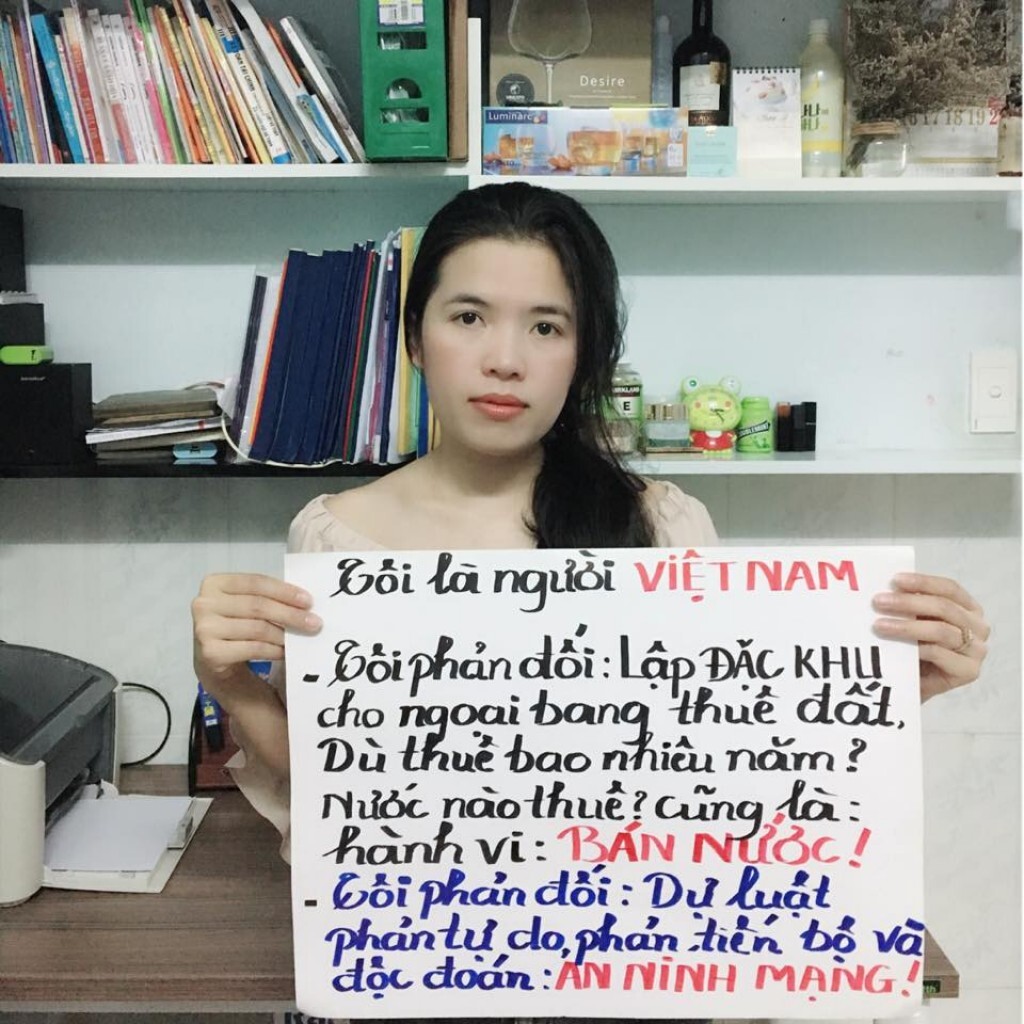 Desire
Luminarc
16 17 18 19 2
Tôi là người VIỆT NAM
- Tôi phản đối: Lập ĐẶC KHU
cho ngoại bang thuê đất,
Dù thuê bao nhiêu năm?
Nước nào thuê? cũng là:
hành vi: BÁN NƯỚC!
- Tôi phản đối: Dự luật
phản tự do, phản tiến bộ và
độc đoán: AN NINH MẠNG!